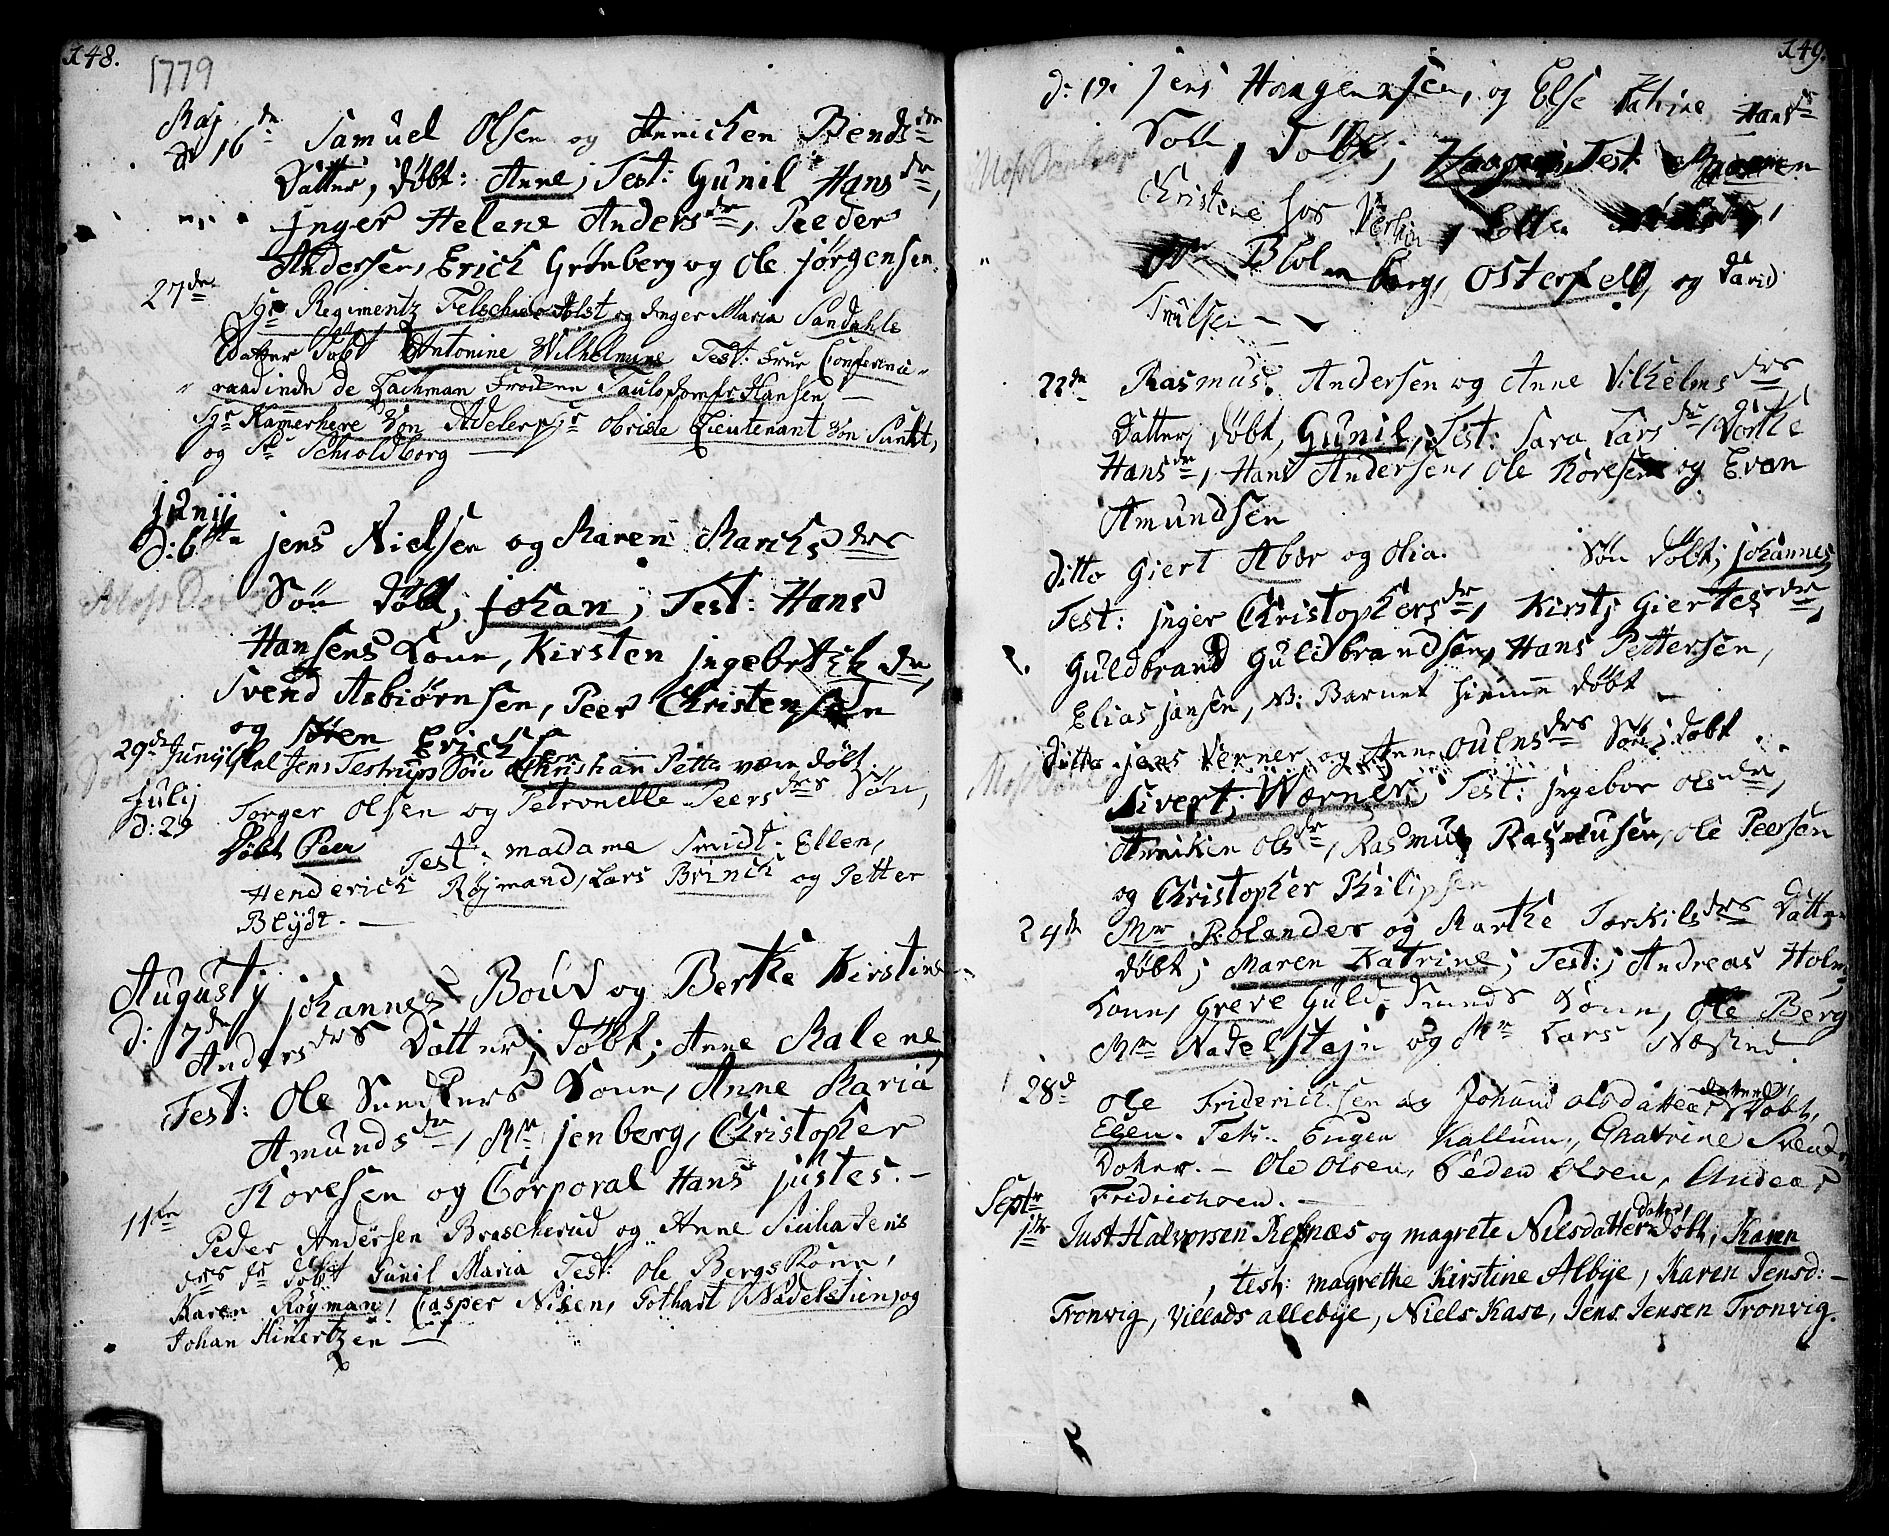 148.
1779
Maj
d 16 dn Samuel Olsen og Annichen Bends dtr
Datter, døbt: Anne; Test: Gunil Hans dr,
Inger Helene Anders dr, Peeder
Andersen, Erich Grønberg og Ole Jørgensen.
27 dn Sgr Regimentz Felschier Alst og Inger Maria Sandahls
Datter Døbt Antonine Wilhelmine Test: Frue Conferentz
raadinde de Lachman Frøiken Jomfr Hansen
Hr Kamerhere Von Adeler, Hr Obriste Lieutenant Von
og Sr Schioldborg
Junij
d: 6te Jens Nielsen og Maren Marchs drs
Søn døbt; Johan; Test: Hans
Hansens Kone, Kirsten Ingebret dr,
Svend Asbiørnsen, Peer Christensen
og Søren Erichsen
29de Junij Jens Testrups Søn Christian Petter være døbt.
Julij
d: 29 Torger Olsen og Petronelle Peers drs Søn,
Døbt Peer Test: madame Smidt. Ellen,
Henderich Røjmand, Lars Brinch og Petter
Blÿdt.
Augustij Johannes Boud og Berthe Kirstine
d: 7 dn Anders drs Datter; døbt; Anne Malene
Test: Ole Sunckers Kone, Anne Maria
Amunds dr, Mr Jenberg, Christopher
Thoresen og Corporal Hans Justes.
11te Peder Andersen Brescherud og Anne Sicilia Jens
drs dr døbt Gunil Maria Test: Ole Bergs Kone,
Karen Røÿman, Casper Nisen, Gothart Nadelstien, og
Johan Hinertzen
149.
d: 19 Jens Haagensen, og Else Katrine Hans dr
Søn, døbt; Haagen, Test:
Christine hos, Elle
Blomberg, Osterfeld, og David
Trulsen
22 dn Rasmus Andersen og Anne Vilhelms drs
Datter, døbt, Gunil, Test: Sara Lars dr, Dorthe
Hans dr, Hans Andersen, Ole Thoresen og Even
Amundsen
ditto Giert Abor og Olia. Søn døbt; Johannes
Test: Inger Christophers dr, Kirsti Giertes dr,
Guldbrand Guldbrandsen, Hans Pettersen,
Elias Jansen, NB: Barnet hiemme døbt
ditto Jens Verner og Anne drs Søn; døbt
Sivert; Wærner; Test: Ingebor Ols dr,
Anniken Ols dr, Rasmus Rasmusen, Ole Peersen
og Christopher Philipsen
24 dn Mr Rolander og Marthe Torkils drs Datter
døbt; Maren Katrine; Test:; Andreas Holms
Kone, Greve Guldsmeds Kone, Ole Berg
Mr Nadelstejn og Mr Lars Næsted.
28 d Ole Friderichsen og Johana Olsdatters dater Døbt,
Elen. Tets. Eugen Kallum, Chatrine Svends
Doter. - Ole Olsen, Peden Olsen, Andeas
Fridrichsen.
Septr
1te Just Halvorsen Refnæs og magrete Nielsdatters datter døbt, Karen
, test: magrethe Kirstine Albÿe, Karen Jensd:
Tronvig, Villads allebÿe, Niels Kase, Jens Jensen Tronvig.